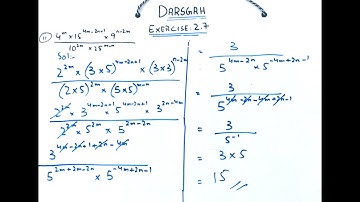 DARSGAH
EXERCISE 2.7
11) 4^m × 15^(4m-2n+1) × 9^(n-2m)
10^2m × 25^(m-n)
Sol:-
2^2m × (3×5)^(4m-2n+1) × (3×3)^(n-2m)
(2×5)^2m × (5×5)^(m-n)
2^2m × 3^(4m-2n+1) × 5^(4m-2n+1) × 3^(2n-4m)
2^2m × 5^2m × 5^(2m-2n)
3^(4m-2n+1+2n-4m)
5^(2m+2m-2n) × 5^(-4m+2n-1)
= 3
5^(4m-2n) × 5^(-4m+2n-1)
= 3
5^(4m-2n-4m+2n-1)
= 3
5^-1
= 3 × 5
= 15 //